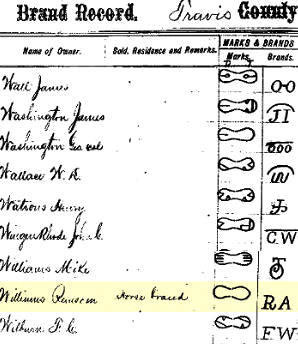 Brand Record. Travis County
Name of Owner. Sold. Residence and Remarks. MARKS & BRANDS
Marks. Brands.
Wall James OO
Washington James JI
Washington
Wallace W. R.
Watrous Henry
C.W
Williams Mike
Williams Ransom Horse brand RA
Wilburn F. C. FW